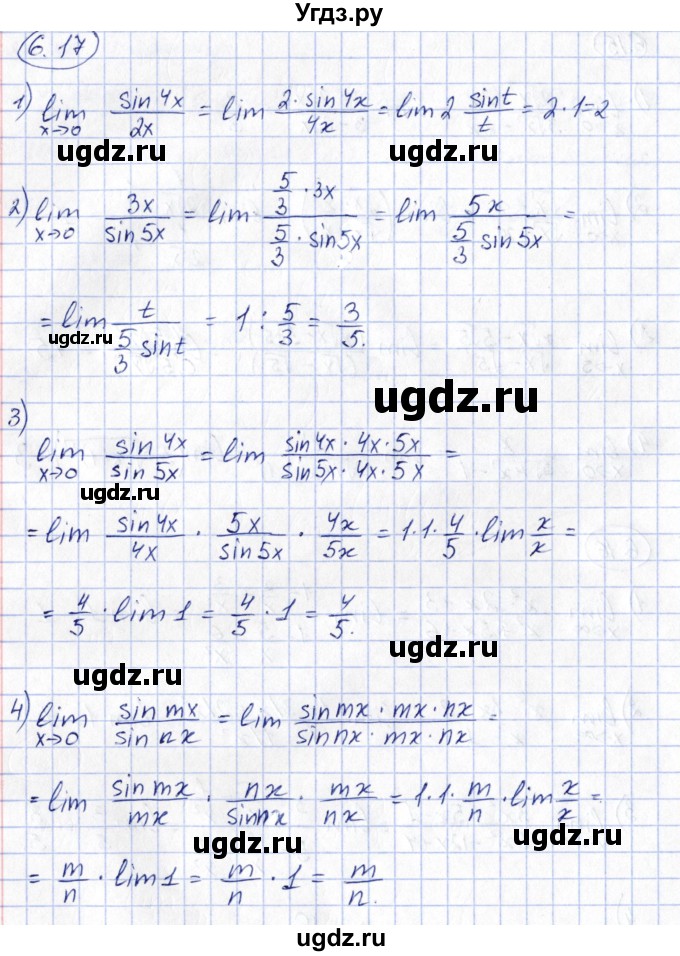 Угдз.ру
6.17
1) lim x→0 sin4x/2x = lim 2·sin4x/4x = lim 2 sint/t = 2·1=2
ugdz.ru ugdz.ru
2) lim x→0 3x/sin5x = lim (5/3·3x)/(5/3·sin5x) = lim 5x/(5/3 sin5x) =
= lim t/(5/3 sint) = 1 : 5/3 = 3/5.
ugdz.ru
ugdz.ru
3)
lim x→0 sin4x/sin5x = lim (sin4x·4x·5x)/(sin5x·4x·5x) =
ugdz.ru
= lim sin4x/4x · 5x/sin5x · 4x/5x = 1·1·4/5 · lim x/x =
= 4/5 · lim 1 = 4/5 · 1 = 4/5.
ugdz.ru
ugdz.ru
4) lim x→0 sin mx/sin nx = lim (sin mx·mx·nx)/(sin nx·mx·nx) =
= lim sin mx/mx · nx/sin nx · mx/nx = 1·1·m/n · lim x/x =
ugdz.ru ugdz.ru
= m/n · lim 1 = m/n · 1 = m/n.
ugdz.ru